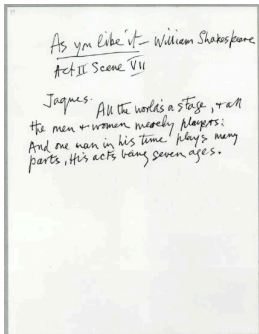 As you like it – William Shakespeare
Act II Scene VII
Jaques.
All the world's a stage, + all
the men + women merely players:
And one man in his time plays many
parts, His acts being seven ages.